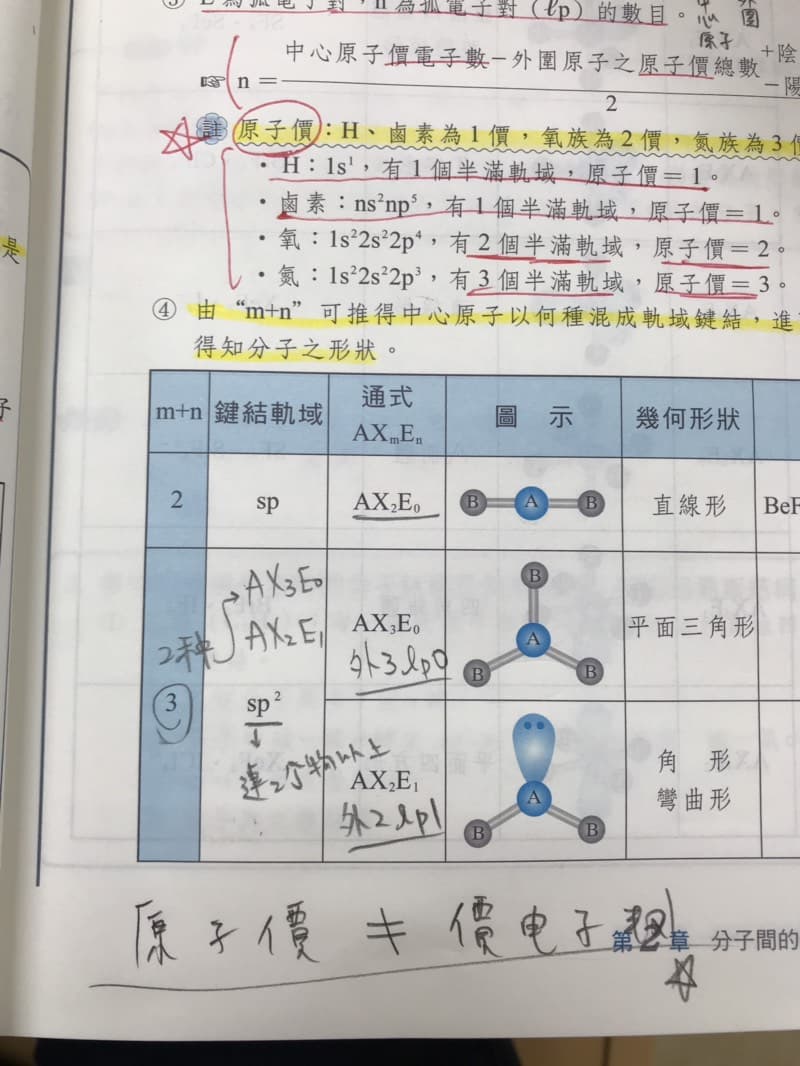 ③ E 為孤電子對，n 為孤電子對（ℓp）的數目。
中心原子
外圍
☞ n = (中心原子價電子數－外圍原子之原子價總數 ＋陰 －陽) / 2
註 原子價：H、鹵素為 1 價，氧族為 2 價，氮族為 3 價
・H：1s¹，有 1 個半滿軌域，原子價＝1。
・鹵素：ns²np⁵，有 1 個半滿軌域，原子價＝1。
・氧：1s²2s²2p⁴，有 2 個半滿軌域，原子價＝2。
・氮：1s²2s²2p³，有 3 個半滿軌域，原子價＝3。
④ 由 “m+n” 可推得中心原子以何種混成軌域鍵結，進
得知分子之形狀。
是
子
m+n 鍵結軌域 通式 AXₘEₙ 圖 示 幾何形狀
2 sp AX₂E₀ B A B 直線形 BeF
2種 AX3E0
AX2E1
3 sp²
AX₃E₀ B A B B 平面三角形
外3 lp0
AX₂E₁ A B B 角 形
彎曲形
外2 lp1
原子價 ≠ 價电子
第 2 章 分子間的